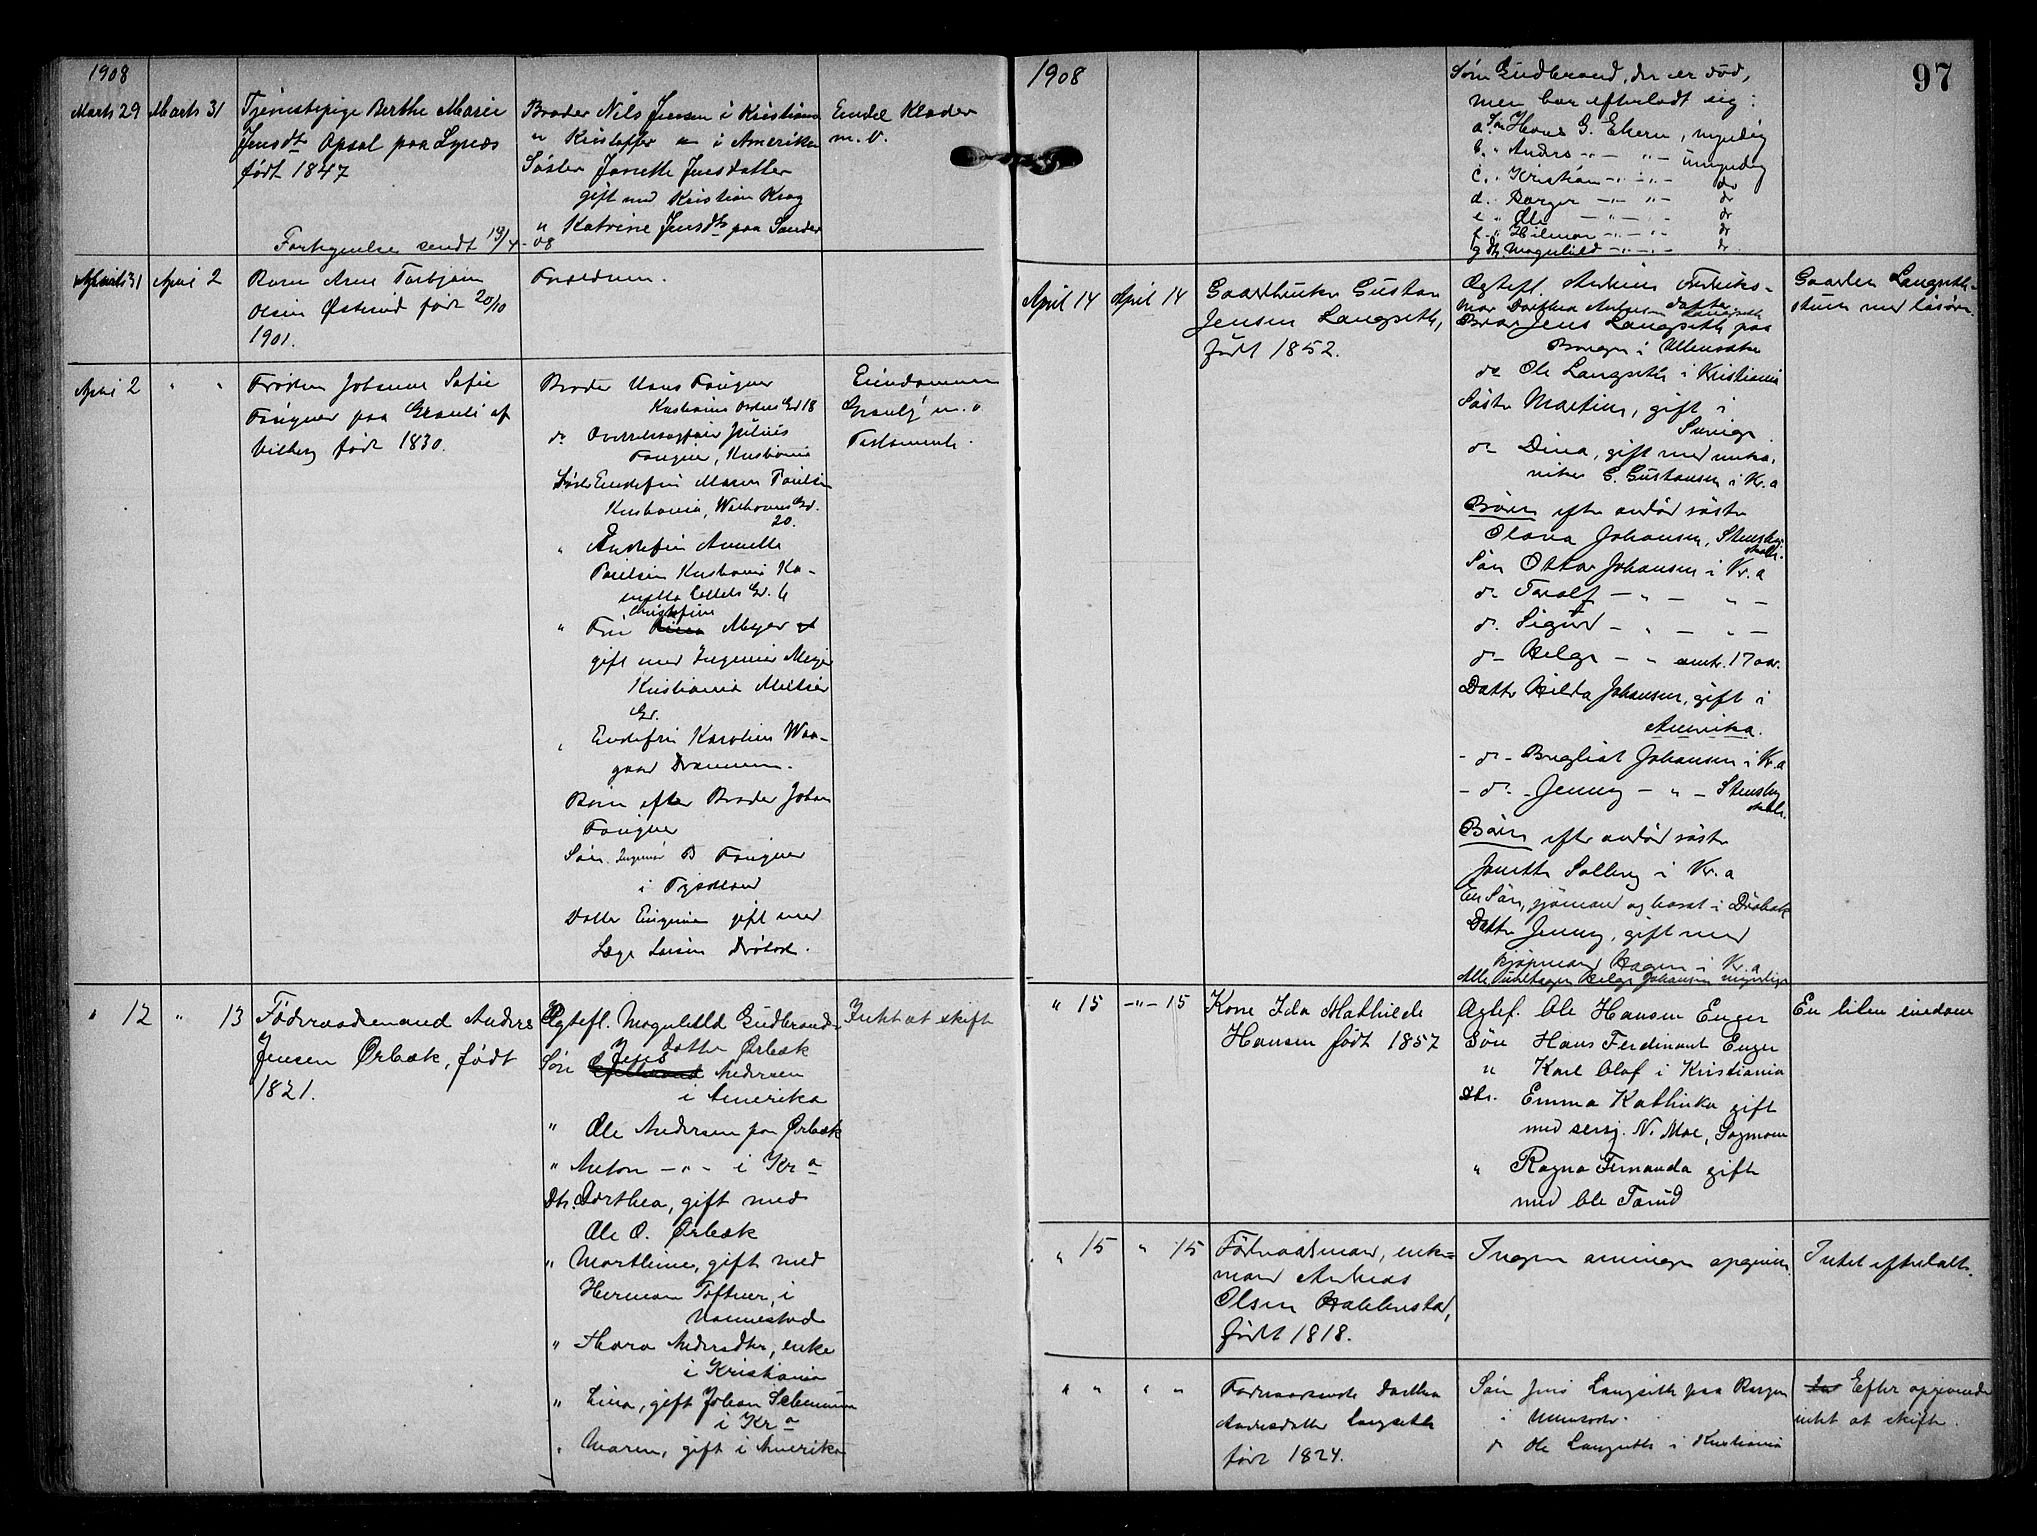 1908
Marts 29
Marts 31
Tjenestepige Berthe Marie
Jensdtr Opsal paa Lynæs
født 1847
Fortegnelse sendt 13/4-08
Broder Nils Jensen i Kristiania
" Kristoffer — i Amerika
Søster Janette Jensdatter
gift med Kristian Krog
" Katrine Jensdtr paa Sander
Endel Klæder
m. v.
Marts 31
April 2
Barn Arne Torbjørn
Olsen Østerud født 20/10
1901.
Forældren.
April 2
" "
Frøken Johanne Sofie
Fougner paa Granli af
Vilberg født 1830.
Broder Hans Fougner
Kristiania
do Overretssagfører Julius
Fougner, Kristiania
Søster Enkefru Maren Poulsen
Kristiania,
20.
" Enkefru Annette
Poulsen Kristiania Ca-
milla Colletts Gd. 6
Christofine
" Fru Meyer
gift med Ingeniør Meyer
Kristiania
Gd.
" Enkefru Karoline Waa-
gaard Drammen.
Børn efter Broder Johan
Fougner
Søn Ingeniør B Fougner
i Tyskland
Datter Eugenie gift med
Læge Larsen Drøbak.
Eiendommen
Granli m. v
Testamente.
" 12
" 13
Føderaadsmand Anders
Jensen Ørbæk, født
1821.
Ægtefl. Magnhild Gudbrands-
datter Ørbæk
Søn Jens Andersen
i Amerika
" Ole Andersen paa Ørbæk
" Anton — " — i Kra
Dtr. Dorthea, gift med
Ole O. Ørbæk
" Marthine, gift med
Herman Toftner, i
Nannestad
" Thora Andersdtr, enke
i Kristiania
" Lina, gift Johan
i Kra
" Maren, gift i Amerika
Intet at skift
1908
97
Søn Gudbrand, der er død,
men har efterladt sig:
a. Søn Hans G. Ekern, myndig
b. " Anders — " — umyndig
c. " Kristian — " — do
d. " Borger — " — do
e " Ole — " — do
f " Hilmar — " — do
g dtr Magnhild — " — do
April 14
April 14
Gaardbruker Gustav
Jensen Langseth,
født 1852.
Ægtefl. Andrine Fredriks-
datter
Mor Dorthea Andersen Langseth
Bror Jens Langseth paa
Borgen i Ullensaker
do Ole Langseth i Kristiania
Søster Martine, gift i
Sverige.
do Dina, gift med meka-
niker G. Gustavsen i Kr.a
Børn efter avdød søster
Olava Johansen, Stensby
Søn Ottar Johansen i Kr.a
do Toralf — " — " —
do. Sigurd — " — " —
do- Helge — " omtr. 17 aar.
Datter Hilda Johansen, gift i
Amerika.
- do - Bergliot Johansen i Kr.a
- do. - Jenny — " — Stensby
Børn efter avdød søster
Janette Solberg i Kr.a
En Søn, sjømand og bosat i Drøbak
Datter Jenny, gift med
kjøpmand Hagen i Kr.a
Alle undtagen Helge Johansen myndige
Gaarden Langseth-
stuen med løsøre.
" 15
— " — 15
Kone Ida Mathilde
Hansen født 1857
Ægtef. Ole Hansen Enger
Søn Hans Ferdinant Enger
" Karl Olaf i Kristiania
Dtr. Emma Kathinka gift
med sersj. N. Moe, Sogmoen
" Ragna Fernanda gift
med Ole Tærud
En liten eiendom
" 15
" 15
Føderaadsmand, enke-
mand Andreas
Olsen Habberstad,
født 1818.
Ingen arvinger opgivne.
Intet efterlatt.
" "
" "
Føderaadsenke Dorthea
Andersdatter Langseth
født 1824.
Søn Jens Langseth paa Borgen
i Ullensaker.
do Ole Langseth i Kristiania
Efter opgivende
intet at skifte.